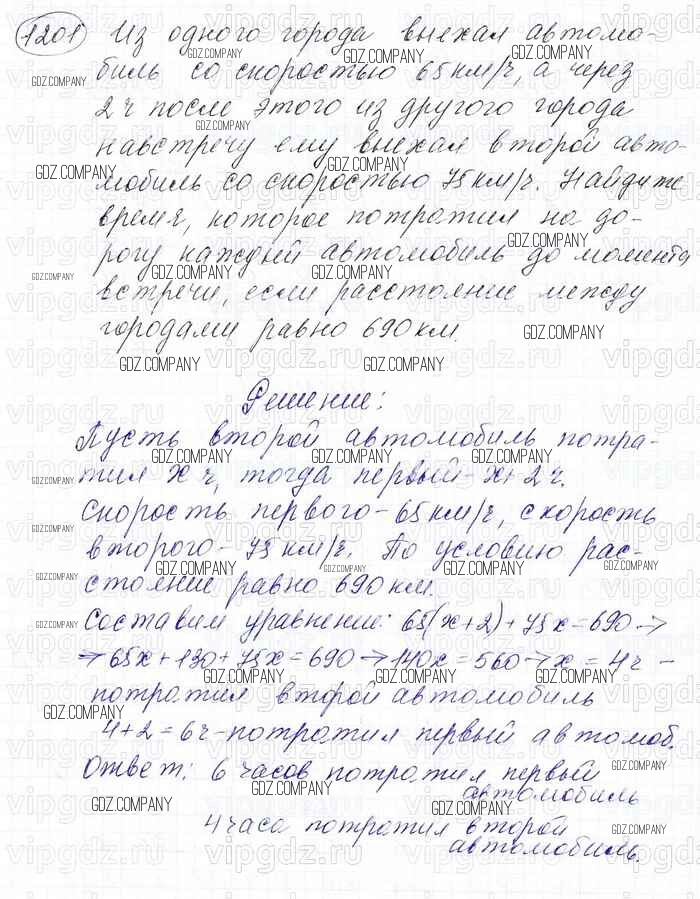 1201 Из одного города выехал автомо-
биль со скоростью 65 км/ч, а через
2 ч после этого из другого города
навстречу ему выехал второй авто-
мобиль со скоростью 75 км/ч. Найдите
время, которое потратил на до-
рогу каждый автомобиль до момента
встречи, если расстояние между
городами равно 690 км.
Решение:
Пусть второй автомобиль потра-
тил x ч, тогда первый - x+2 ч.
Скорость первого - 65 км/ч, скорость
второго - 75 км/ч. По условию рас-
стояние равно 690 км.
Составим уравнение: 65(x+2)+75x=690 →
→ 65x+130+75x=690 → 140x=560 → x=4ч -
потратил второй автомобиль
4+2=6ч - потратил первый автомоб.
Ответ: 6 часов потратил первый
автомобиль
4 часа потратил второй
автомобиль.